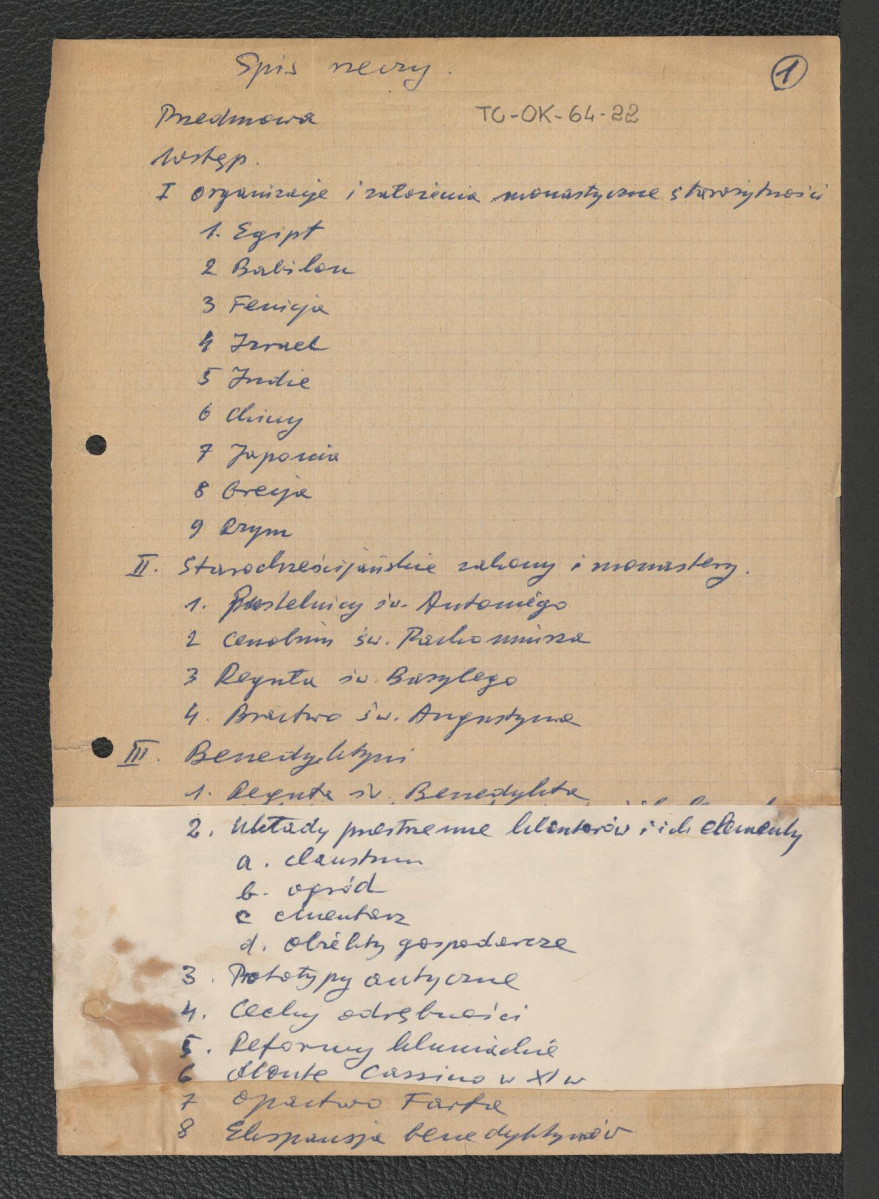 Spis rzeczy.
1
Przedmowa
TC-OK-64-22
Wstęp.
I organizacje i założenia monastyczne starożytności
1. Egipt
2 Babilon
3 Fenicja
4 Izrael
5 Indie
6 Chiny
7 Japonia
8 Grecja
9 Rzym
II. Starochrześcijańskie zakony i monastery.
1. Pustelnicy św. Antoniego
2 Cenobium św. Pachomiusza
3 Reguła św. Bazylego
4. Bractwo św. Augustyna
III. Benedyktyni
1. Reguła św. Benedykta
2. Układy przestrzenne klasztorów i ich elementy
a. claustrum
b. ogród
c cmentarz
d. obiekty gospodarcze
3. Prototypy antyczne
4. Cechy odrębności
5. Reformy kluniackie
6 Monte Cassino w XI w
7 Opactwo Farfa
8 Ekspansja benedyktynów